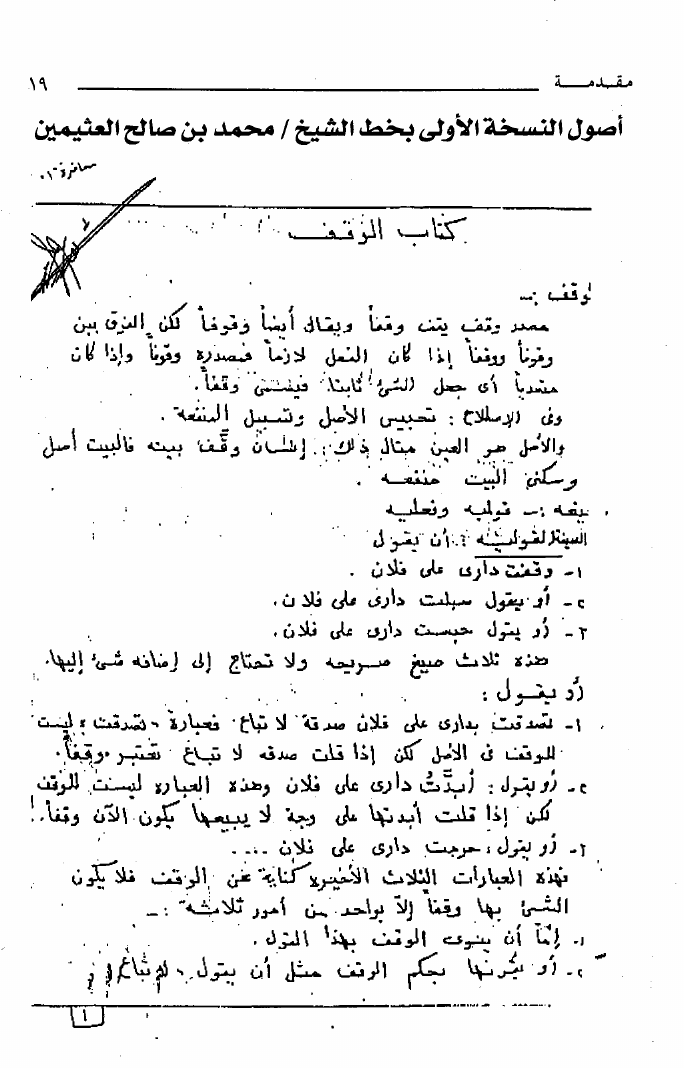 مقدمة ١٩
أصول النسخة الأولى بخط الشيخ / محمد بن صالح العثيمين
كتاب الوقف
لوقف :ـ
مصدر وقف يقف وقفاً ويقال أيضاً وقوفاً لكن الفرق بين
وقوفاً ووقفاً إذا كان الفعل لازماً فمصدره وقوفاً وإذا كان
متعدياً أي جعل الشئ ثابتا. فيسمى وقفاً.
وفى الإصطلاح : تحبيس الأصل وتسبيل المنفعة .
والأصل هو العين مثال ذلك : إنسان وقَّف بيته فالبيت أصل
وسكنى البيت منفعه .
يغه :ـ قوليه وفعليه
الصيغة القوليه : أن يقول
١- وقفت دارى على فلان .
٢- أو يقول سبلت دارى على فلان.
٣- أو يقول حبست دارى على فلان.
هذه ثلاث صيغ صريحه ولا تحتاج إلى إضافه شئ إليها.
أو يقول :
١- تصدقت بدارى على فلان صدقة لا تباع فعبارة «تصدقت» ليست
للوقف فى الأصل لكن إذا قلت صدقه لا تباع تعتبر وقفاً.
٢- أو يقول : أبدَّتُ دارى على فلان وهذه العباره ليست للوقف
لكن إذا قلت أبدتها على وجة لا يبيعها يكون الآن وقفاً.!
٣- أو يقول : حرمت دارى على فلان ....
فهذه العبارات الثلاث الأخيره كناية عن الوقف فلا يكون
الشئ بها وقفاً إلاّ بواحد من أمور ثلاثه :ـ
١- إمّا أن ينوى الوقف بهذا القول .
٢- أو يقرنها بحكم الوقف مثل أن يقول
١